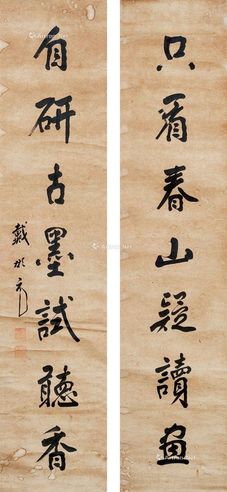 只看春山疑讀畫
自研古墨試聽香
戴彬元